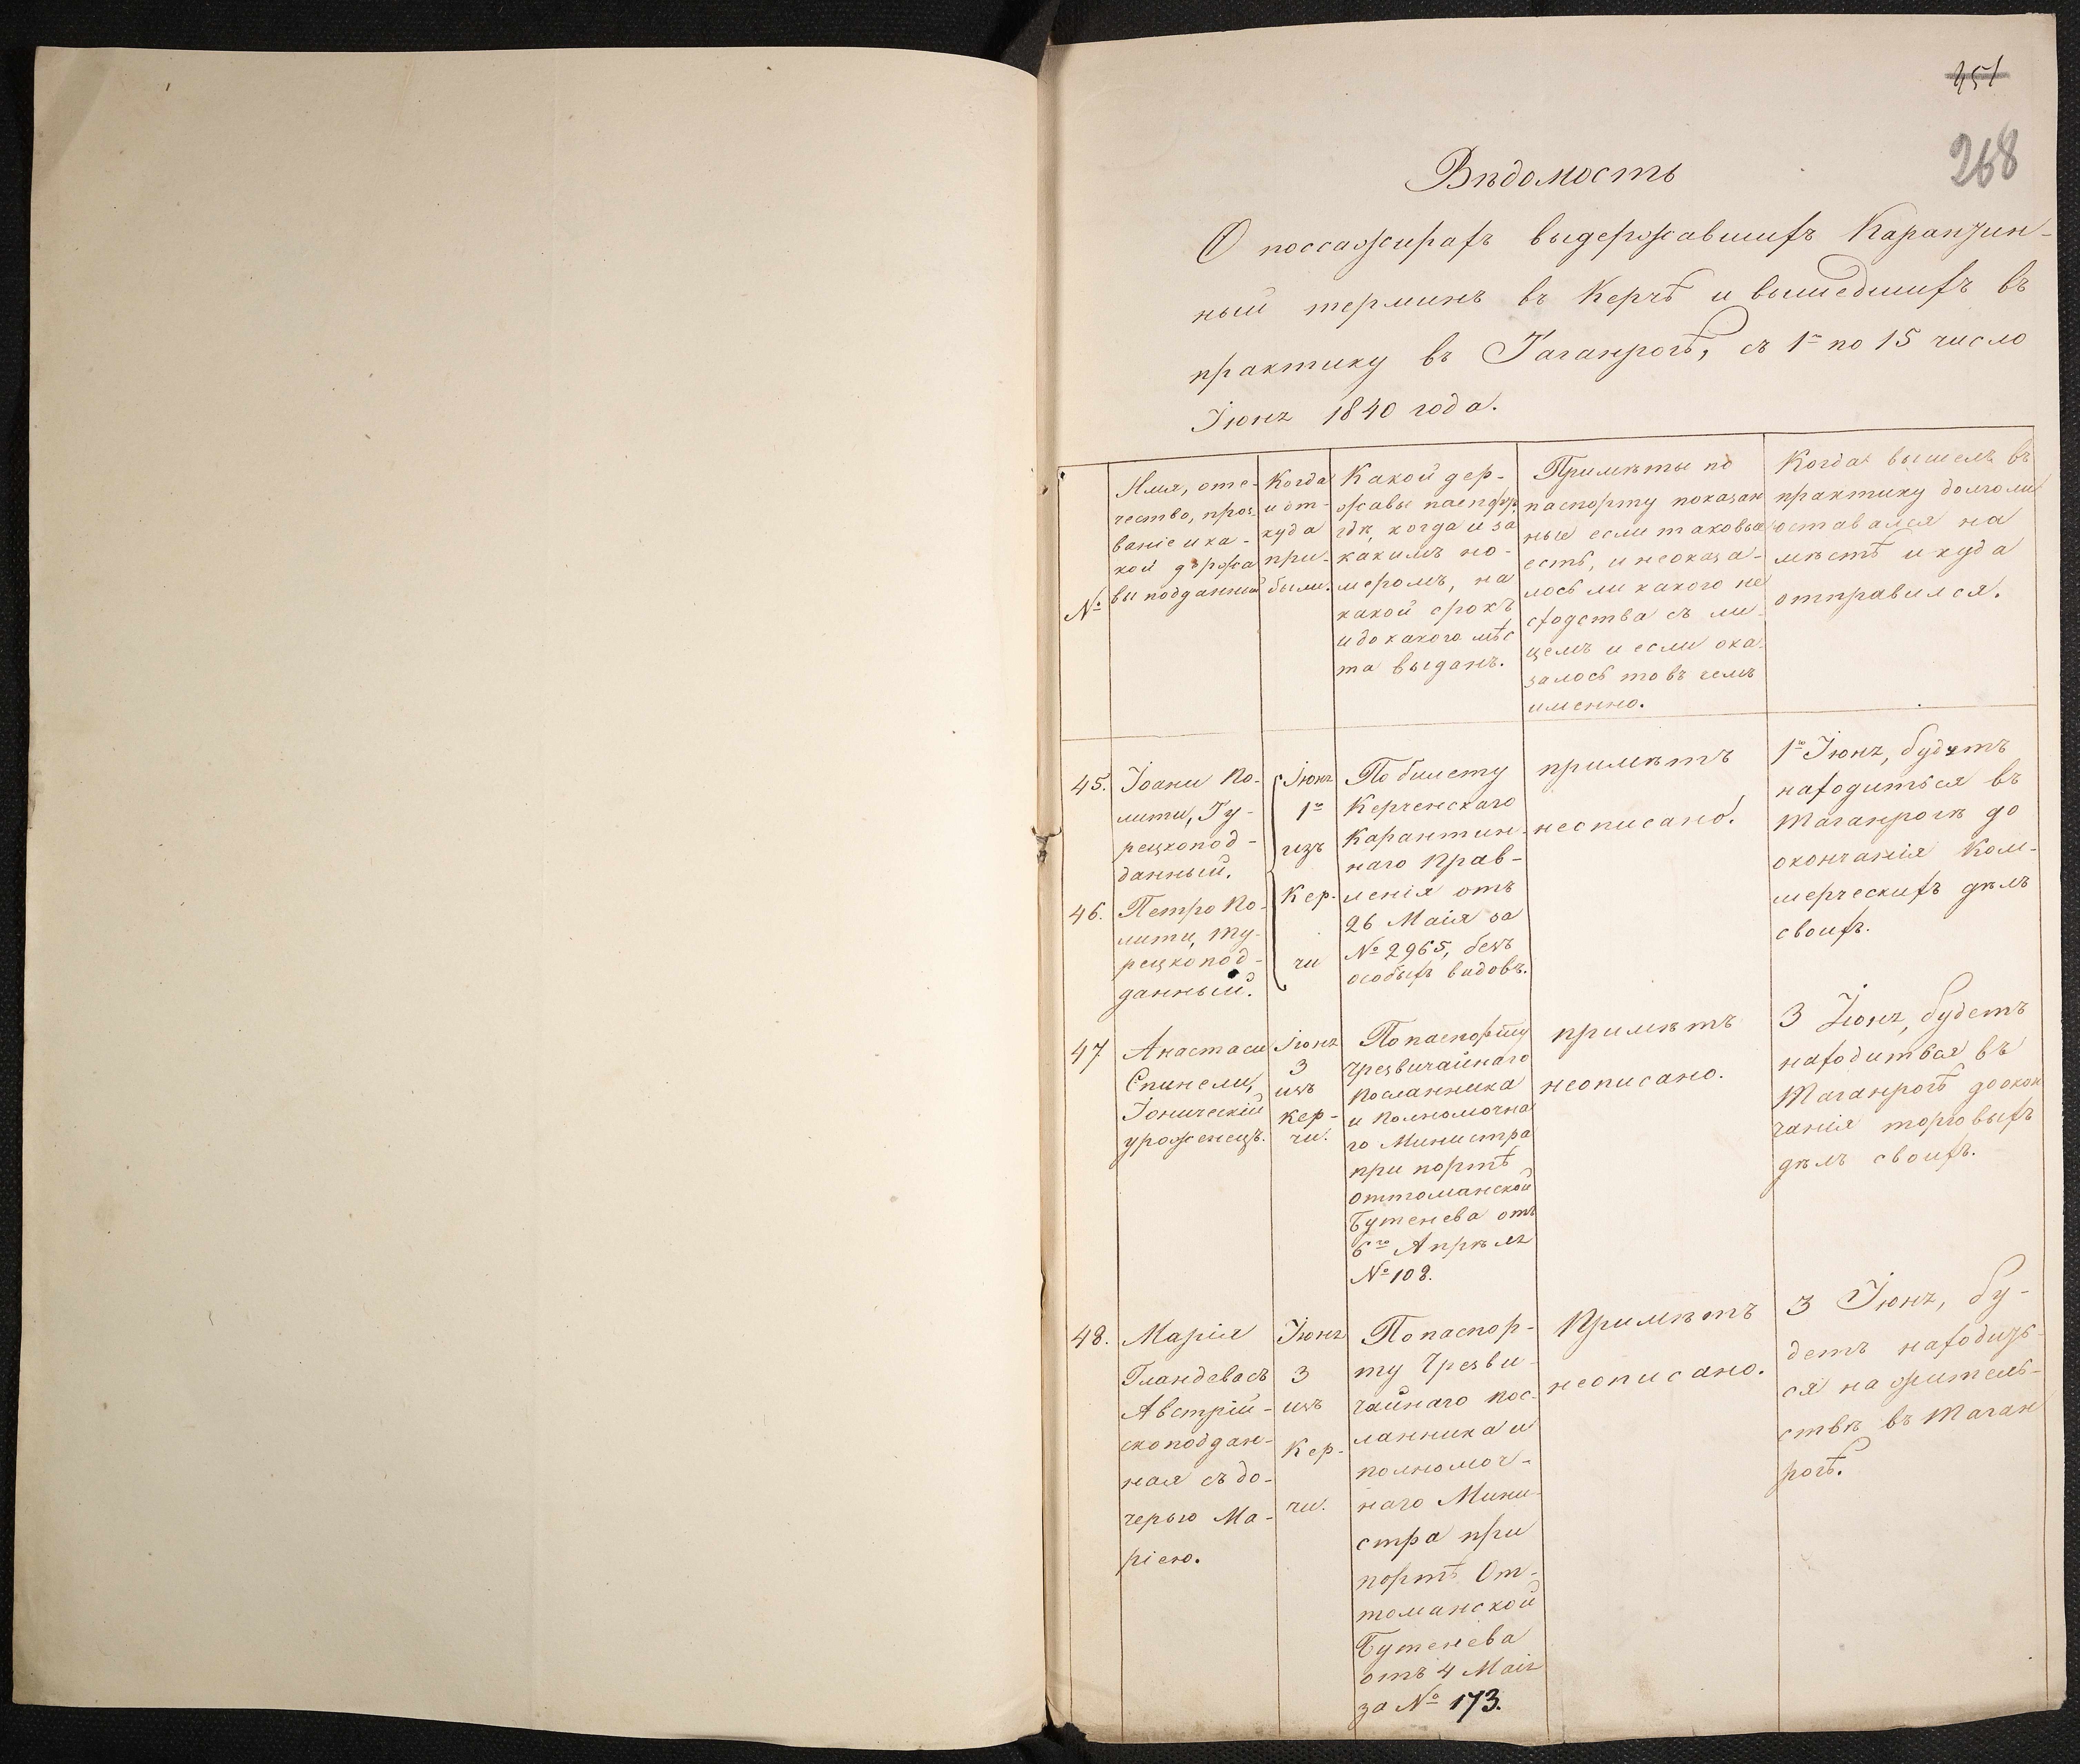 451
268
Вѣдомость
О поссажирахъ выдержавшихъ Карантин-
ный терминъ въ Керчѣ и вышедшихъ въ
практику въ Таганрогѣ, съ 1го по 15 число
Іюня 1840 года.
№
Имя, оте-
чество, проз-
ваніе и ка-
кой держа
вы подданный
Когда
и от-
куда
при-
были.
Какой дер-
жавы паспортъ
гдѣ, когда и за
какимъ но-
меромъ, на
какой срокъ
и до какого мѣс
та выданъ.
Примѣты по
паспорту показан
ные если таковые
есть, и неоказа-
лось ли какого не
сходства съ ли-
цемъ и если ока-
залось то въ чемъ
именно.
Когда вышелъ въ
практику долго ли
оставался на
мѣстѣ и куда
отправился.
45.
Іоани По-
лити, Ту-
рецкопод-
данный.
46.
Петро По-
лити, ту-
рецкопод-
данный.
Іюня
1го
изъ
Кер-
чи
По билету
Керченскаго
Карантин-
наго Прав-
ленія отъ
26 Маія за
№ 2965, безъ
особыхъ видовъ.
примѣтъ
неописано.
1го Іюня, будетъ
находиться въ
Таганрогѣ до
окончанія Ком-
мерческихъ дѣлъ
своихъ.
47
Анастаси
Спинели,
Іоническій
уроженецъ.
Іюня
3
изъ
Кер-
чи.
По паспорту
Чрезвычайнаго
Посланника
и Полномочна
го Министра
при портѣ
Оттоманской
Бутенева отъ
6го Апрѣля
№ 108.
примѣтъ
неописано.
3 Іюня, будетъ
находиться въ
Таганрогѣ до окон
чанія торговыхъ
дѣлъ своихъ.
48.
Марія
Гландевасъ
Австрій-
скоподдан-
ная съ до-
черью Ма-
ріею.
Іюня
3
изъ
Кер-
чи.
По паспор-
ту Чрезвы-
чайнаго пос-
ланника и
полномоч-
наго Мини-
стра при
портѣ От-
томанской
Бутенева
отъ 4 Маія
за № 173.
Примѣтъ
неописано.
3 Іюня, бу-
детъ находить-
ся на жительс-
твѣ въ Таган
рогѣ.